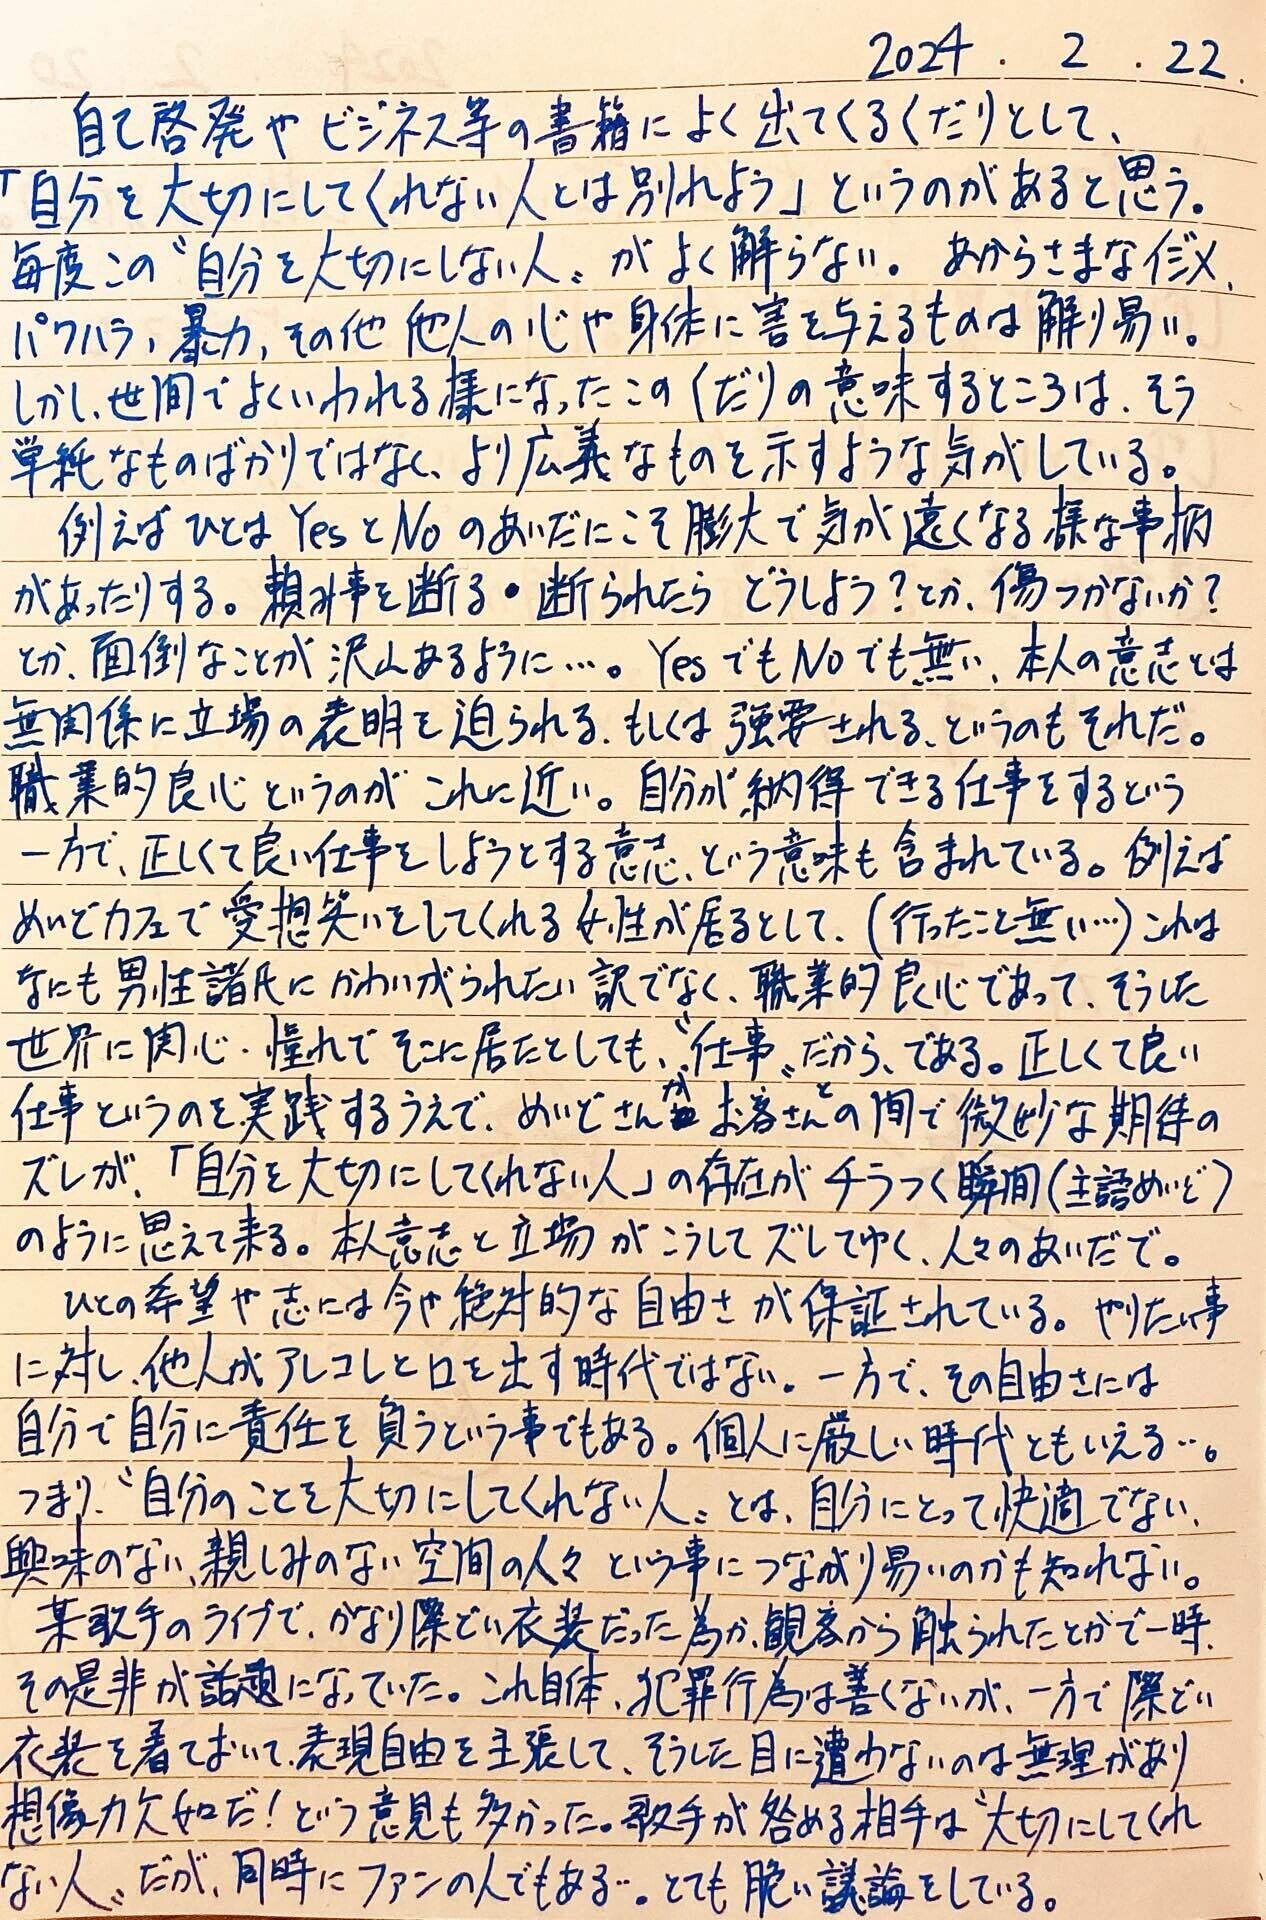 2024. 2. 22.
自己啓発やビジネス等の書籍によく出てくるくだりとして、
「自分を大切にしてくれない人とは別れよう」というのがあると思う。
毎度この〝自分を大切にしない人〟がよく解らない。あからさまなイジメ、
パワハラ、暴力、その他他人の心や身体に害を与えるものは解り易い。
しかし、世間でよくいわれる様になったこのくだりの意味するところは、そう
単純なものばかりではなく、より広義なものを示すような気がしている。
例えばひとはYesとNoのあいだにこそ膨大で気が遠くなる様な事柄
があったりする。頼み事を断る・断られたらどうしよう？とか、傷つかないか？
とか、面倒なことが沢山あるように…。YesでもNoでも無い、本人の意志とは
無関係に立場の表明を迫られる、もしくは強要される、というのもそれだ。
職業的良心というのがこれに近い。自分が納得できる仕事をするという
一方で、正しくて良い仕事をしようとする意志、という意味も含まれている。例えば
めいどカフェで愛想笑いをしてくれる女性が居るとして、(行ったこと無い…)これは
なにも男性諸氏にかわいがられたい訳でなく、職業的良心であって、そうした
世界に関心・憧れでそこに居たとしても、〝仕事〟だから、である。正しくて良い
仕事というのを実践するうえで、めいどさんがお客さんとの間で微妙な期待の
ズレが、「自分を大切にしてくれない人」の存在がチラつく瞬間(主語めいど)
のように思えて来る。本人意志と立場がこうしてズレてゆく、人々のあいだで。
ひとの希望や志には今や絶対的な自由さが保証されている。やりたい事
に対し、他人がアレコレと口を出す時代ではない。一方で、その自由さには
自分で自分に責任を負うという事でもある。個人に厳しい時代ともいえる…。
つまり、〝自分のことを大切にしてくれない人〟とは、自分にとって快適でない、
興味のない、親しみのない空間の人々という事につながり易いのかも知れない。
某歌手のライブで、かなり際どい衣装だった為か、観客から触られたとかで一時、
その是非が話題になっていた。これ自体、犯罪行為は善くないが、一方で際どい
衣装を着ておいて、表現自由を主張して、そうした目に遭わないのは無理があり
想像力欠如だ！という意見も多かった。歌手が咎める相手は〝大切にしてくれ
ない人〟だが、同時にファンの人でもある…。とても脆い議論をしている。